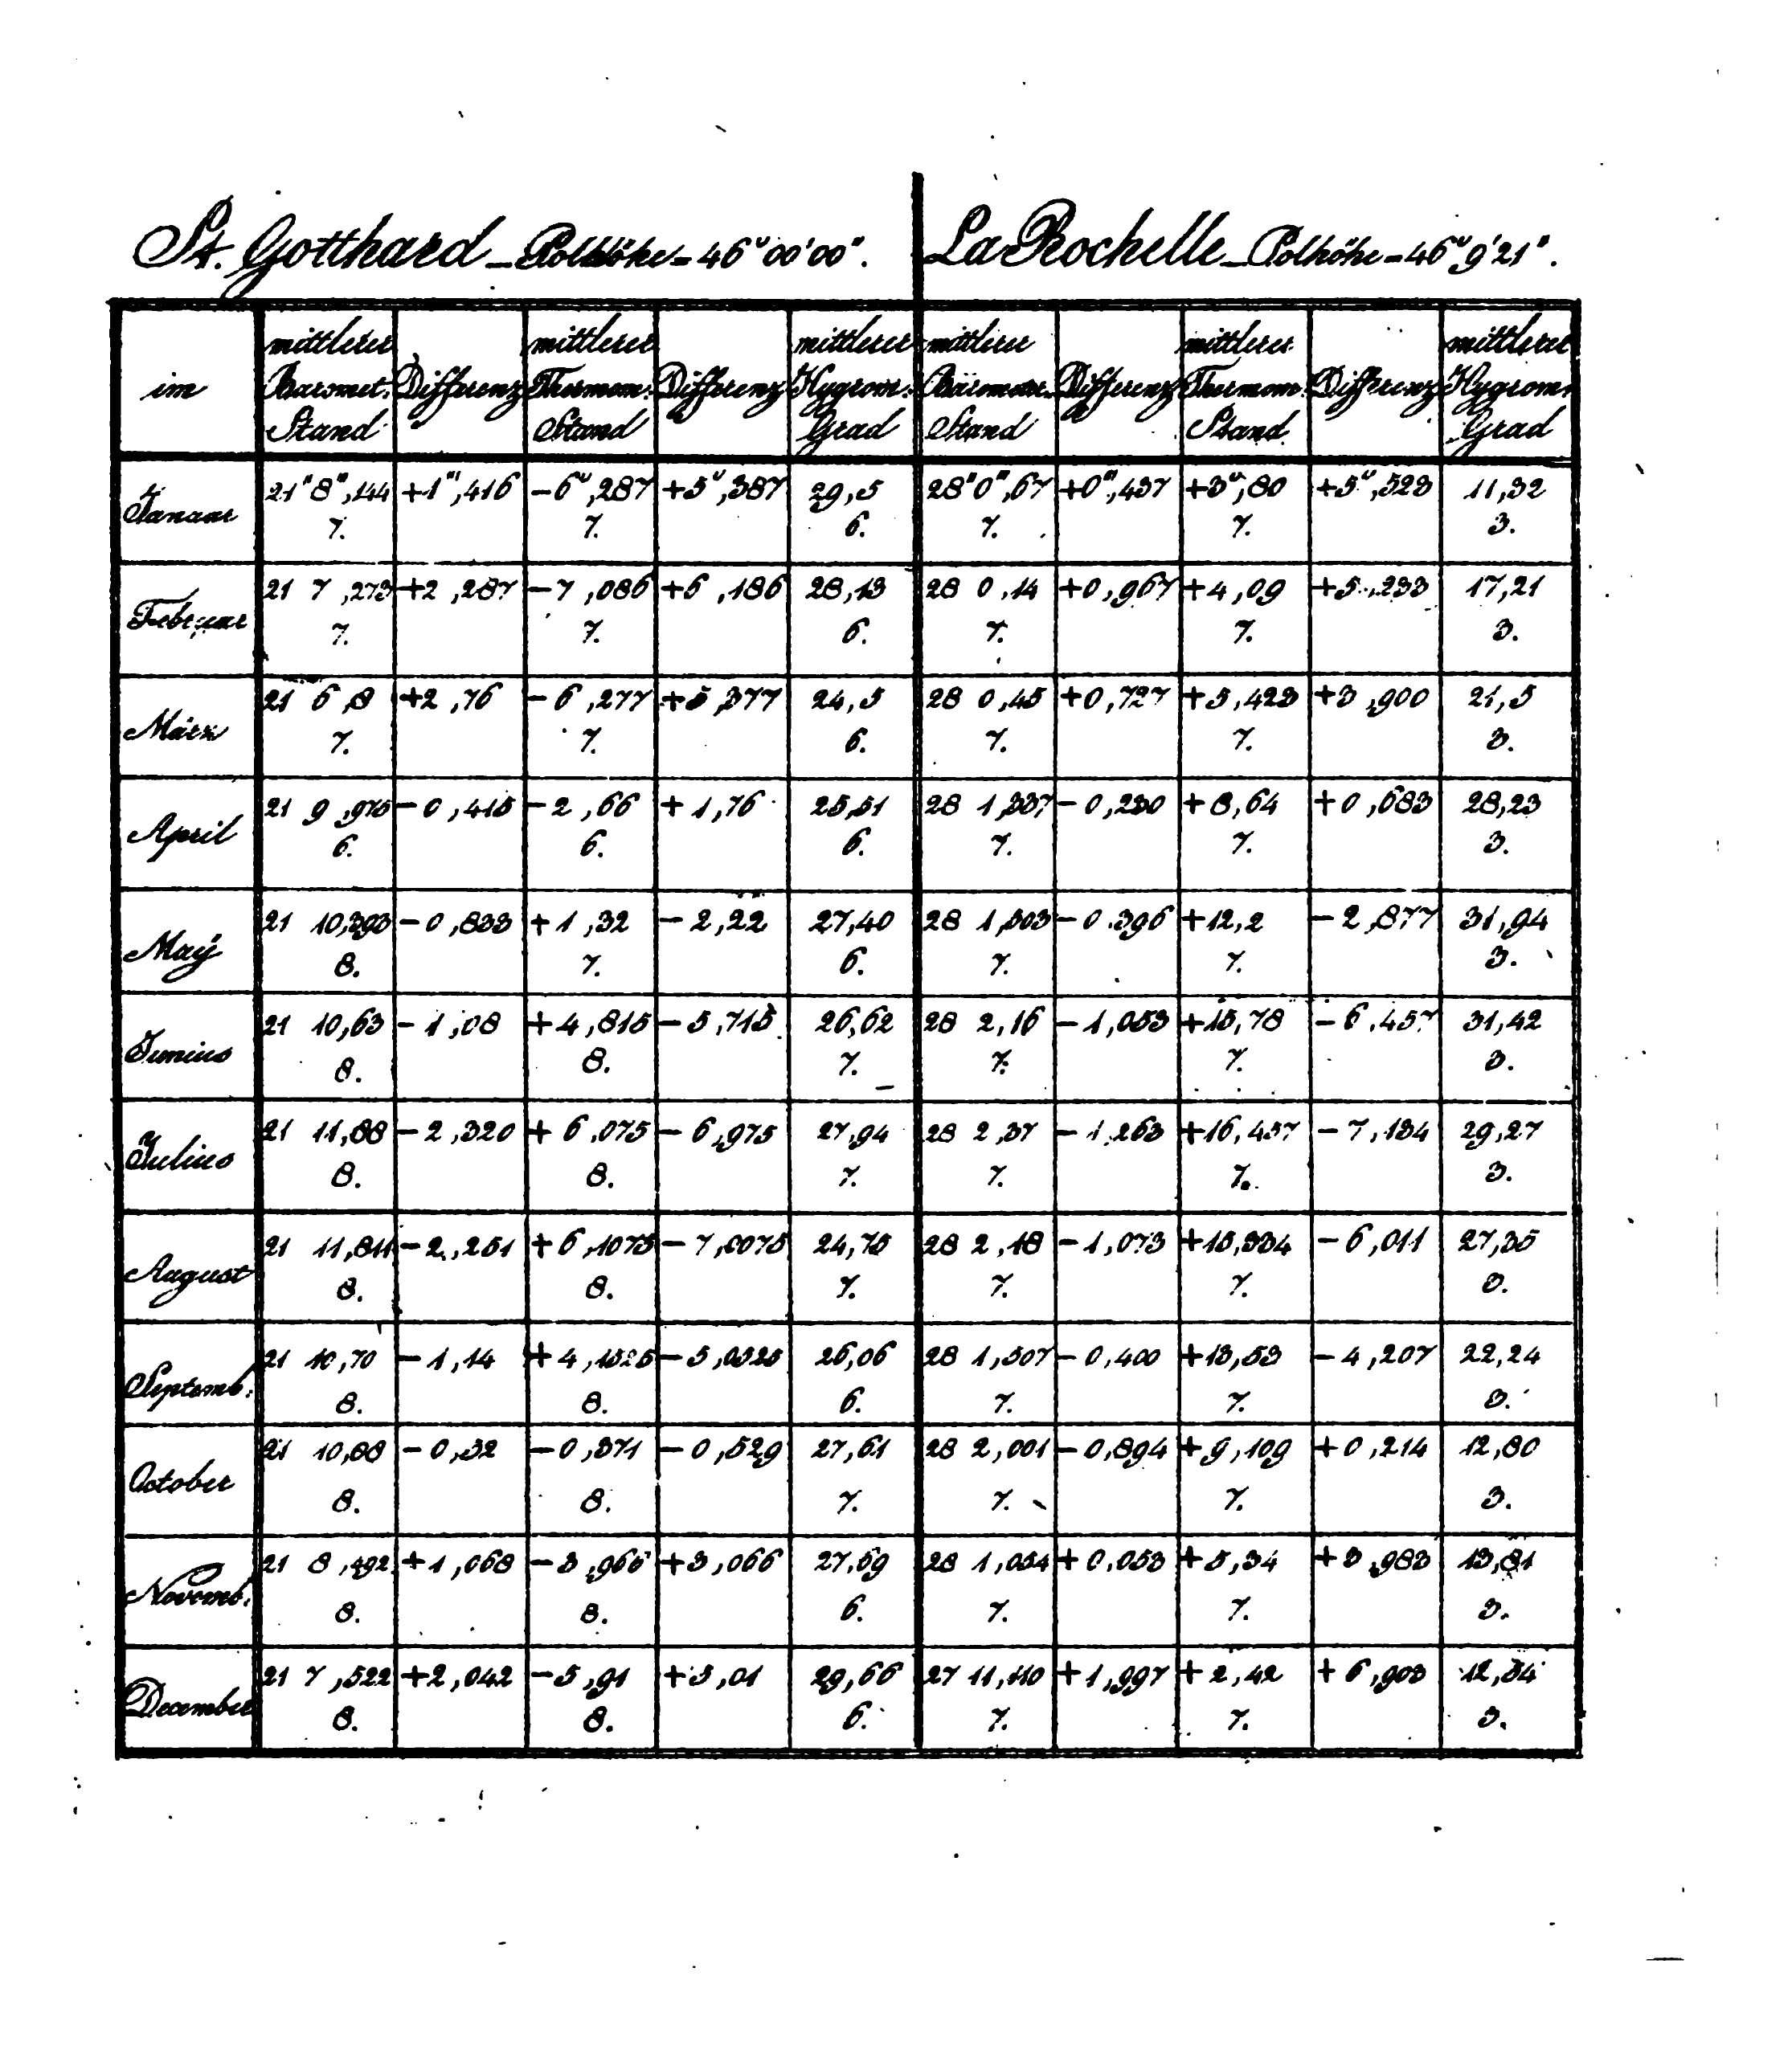 St. Gotthard – Polhöhe = 46° 00' 00". La Rochelle – Polhöhe = 46° 9' 21".
im mittlerer Baromet. Stand Differenz mittlerer Thermom. Stand Differenz mittlerer Hygrom. Grad mittlerer Baromet. Stand Differenz mittlerer Thermom. Stand Differenz mittlerer Hygrom. Grad
Januar 21" 8"',144 +1"',416 -6°,287 +5°,387 29,5 28" 0"',67 +0"',437 +3°,80 +5°,523 11,32
7. 7. 6. 7. 7. 3.
Februar 21 7,273 +2,287 -7,086 +6,186 28,13 28 0,14 +0,967 +4,09 +5,233 17,21
7. 7. 6. 7. 7. 3.
März 21 6,8 +2,76 -6,277 +5,377 24,5 28 0,45 +0,727 +5,423 +3,900 21,5
7. 7. 6. 7. 7. 3.
April 21 9,975 -0,415 -2,66 +1,76 25,51 28 1,337 -0,230 +8,64 +0,683 28,23
6. 6. 6. 7. 7. 3.
Maÿ 21 10,393 -0,833 +1,32 -2,22 27,40 28 1,503 -0,396 +12,2 -2,877 31,94
8. 7. 6. 7. 7. 3.
Junius 21 10,63 -1,08 +4,815 -5,715 26,62 28 2,16 -1,053 +15,78 -6,457 31,42
8. 8. 7. 7. 7. 3.
Julius 21 11,88 -2,320 +6,075 -6,975 27,94 28 2,37 -1,263 +16,457 -7,134 29,27
8. 8. 7. 7. 7. 3.
August 21 11,811 -2,251 +6,1075 -7,0075 24,75 28 2,18 -1,073 +15,334 -6,011 27,35
8. 8. 7. 7. 7. 3.
Septemb. 21 10,70 -1,14 +4,1325 -5,0325 26,06 28 1,507 -0,400 +13,53 -4,207 22,24
8. 8. 6. 7. 7. 3.
October 21 10,88 -0,32 -0,371 -0,529 27,61 28 2,001 -0,894 +9,109 +0,214 12,80
8. 8. 7. 7. 7. 3.
Novemb. 21 8,492 +1,068 -3,966 +3,066 27,69 28 1,054 +0,053 +5,34 +3,983 13,81
8. 8. 6. 7. 7. 3.
December 21 7,522 +2,042 -5,91 +5,01 29,66 27 11,110 +1,997 +2,42 +6,903 12,34
8. 8. 6. 7. 7. 3.